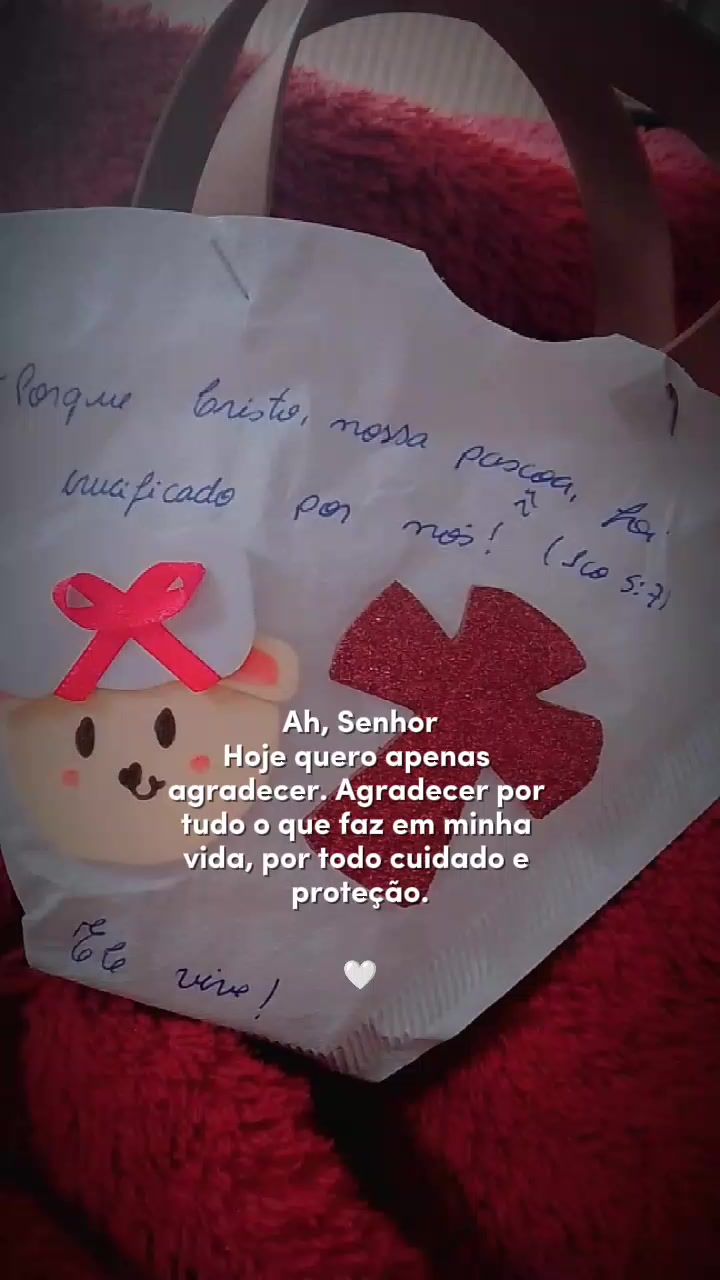 "Porque Cristo, nossa pascoa, foi
crucificado por nós! (1co 5:7)
Ah, Senhor
Hoje quero apenas
agradecer. Agradecer por
tudo o que faz em minha
vida, por todo cuidado e
proteção.
🤍
Ele vive!